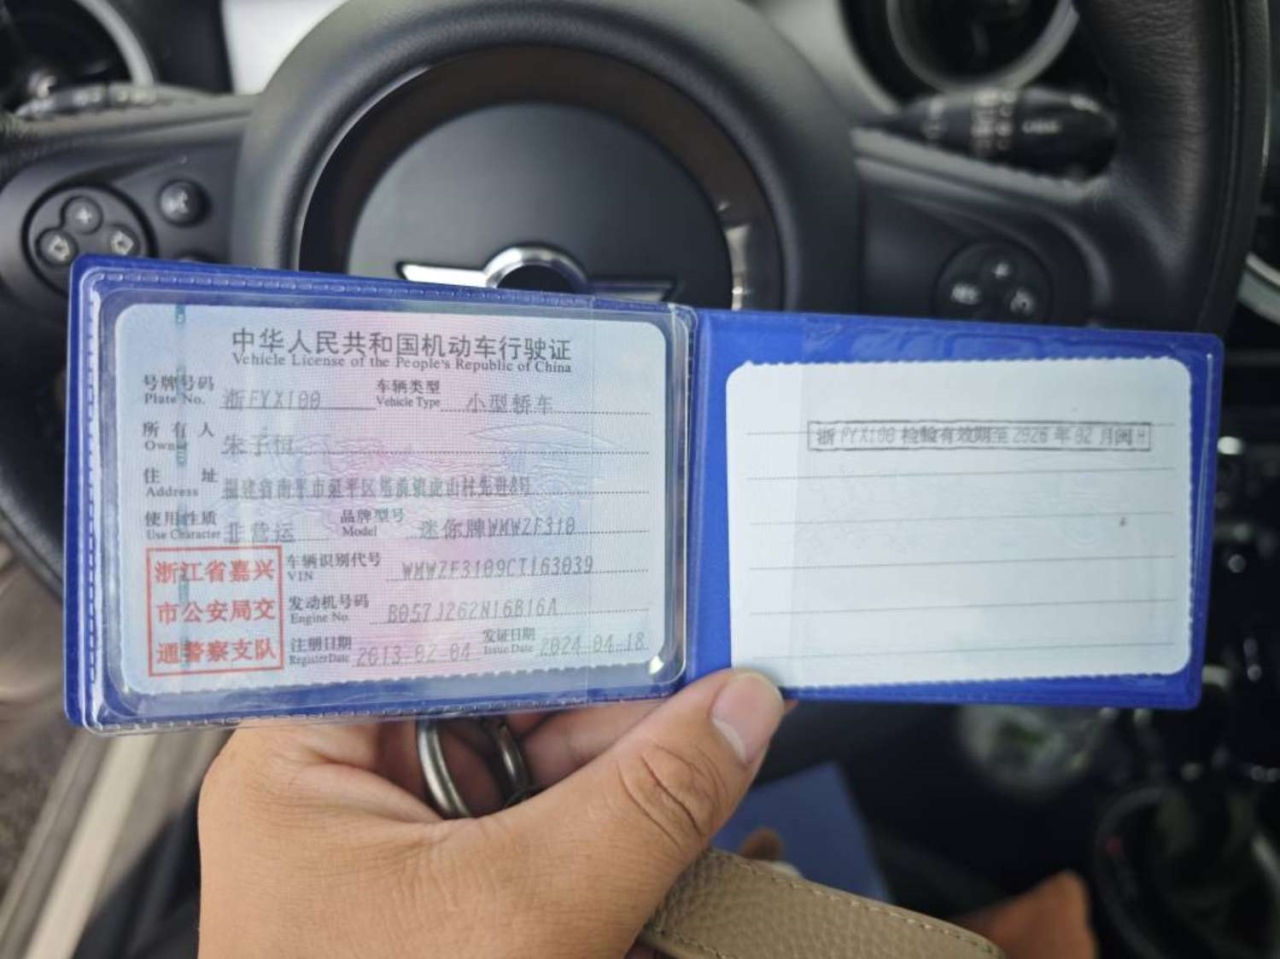 中华人民共和国机动车行驶证
Vehicle License of the People's Republic of China
号牌号码 浙FYX100 车辆类型 小型轿车
Plate No. Vehicle Type
所有人 朱子恒
Owner
住址 福建省南平市延平区塔前镇虎山村先进8号
Address
使用性质 非营运 品牌型号 迷你牌WMWZF310
Use Character Model
浙江省嘉兴
市公安局交
通警察支队
车辆识别代号 WMWZF3109CT163039
VIN
发动机号码 B057J262N16B16A
Engine No.
注册日期 2013-02-04 发证日期 2024-04-18
Register Date Issue Date
浙FYX100 检验有效期至 2026 年 02 月